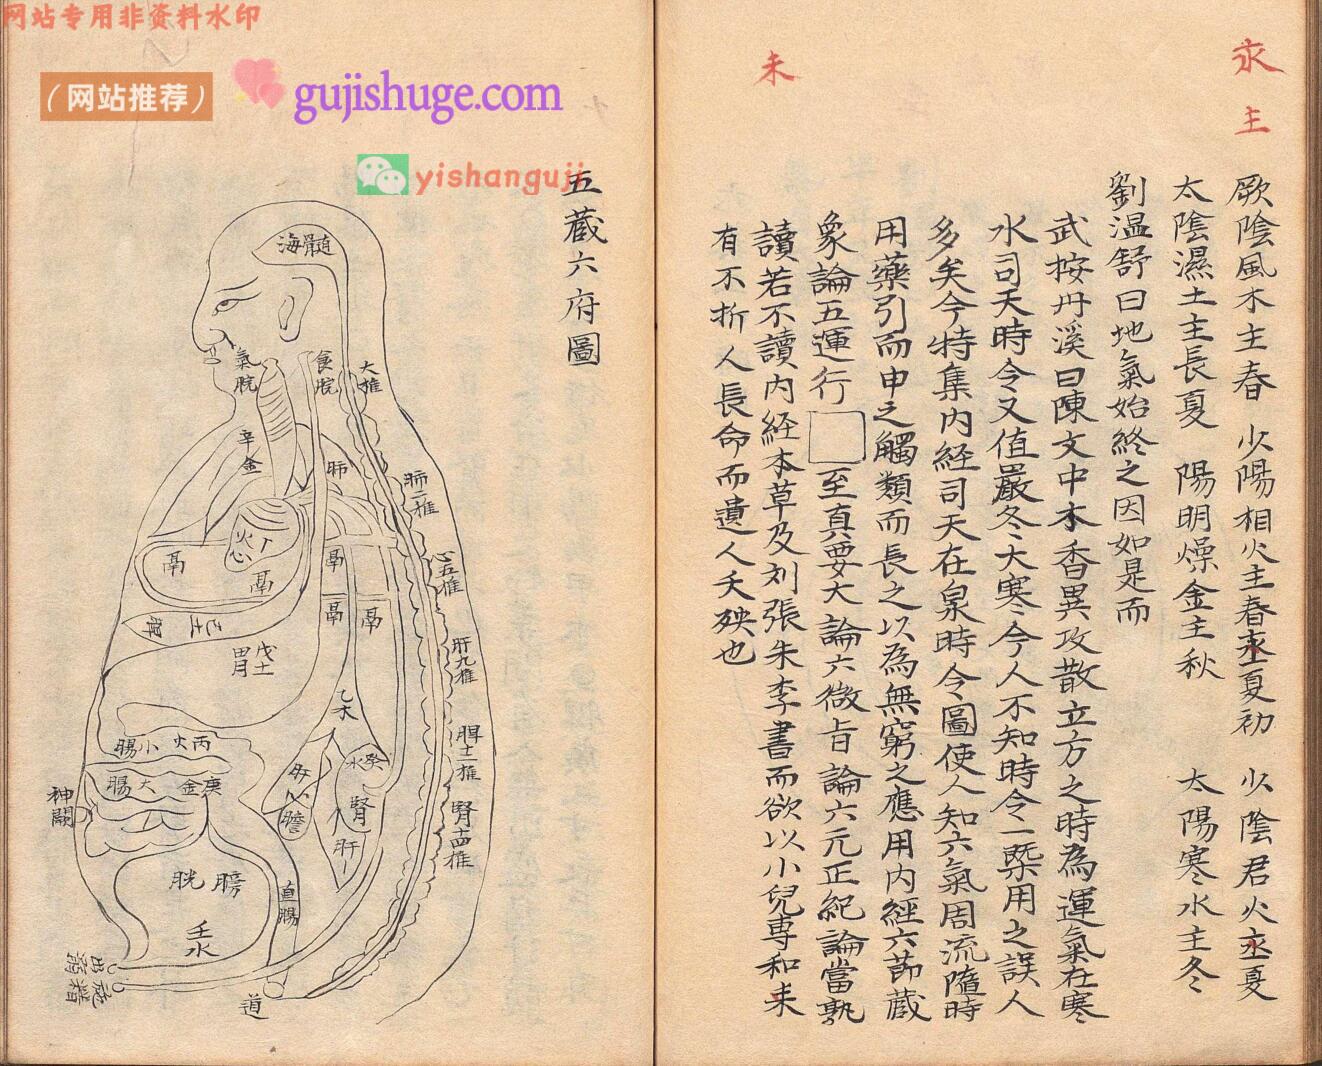 网站专用非资料水印
（网站推荐）
gujishuge.com
yishanguji
氶
主
未
厥陰風木主春 少陽相火主春氶夏初 少陰君火氶夏
太陰濕土主長夏 陽明燥金主秋 太陽寒水主冬
劉温舒曰地氣始終之因如是而
武按丹溪曰陳文中木香異攻散立方之時為運氣在寒
水司天時令又值嚴冬大寒今人不知時令一槩用之誤人
多矣今特集内経司天在泉時令圖使人知六氣周流隨時
用藥引而申之觸類而長之以為無窮之應用内經六莭蔵
象論五運行□至真要大論六微旨論六元正紀論當熟
讀若不讀内経本草及刘張朱李書而欲以小兒専和未
有不折人長命而遺人夭殃也
五蔵六府圖
髓海
氣脘
食脘
大椎
辛金
肺
肺二椎
丁火
心
心五椎
鬲
鬲
鬲
鬲
鬲
脾
己土
戊土
胃
肝九椎
乙木
脾十一椎
丙火小腸
庚金大腸
癸水
腎
膽
肝
腎十四椎
神闕
膀胱
壬水
直腸
道